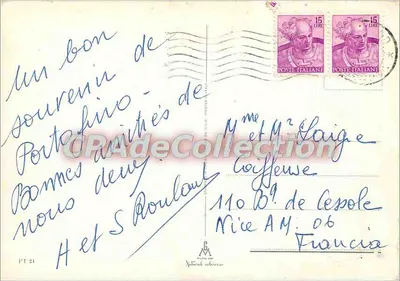 Un bon
souvenir de
Portofino -
Bonnes amitiés de
nous deux.
H et S Roulant
15 LIRE
POSTE ITALIANE
15 LIRE
POSTE ITALIANE
Mme et Mr Laigre
Coiffeuse
110 Bd. de Cessole
Nice AM. 06
Francia
CPADeCollection
PT 21